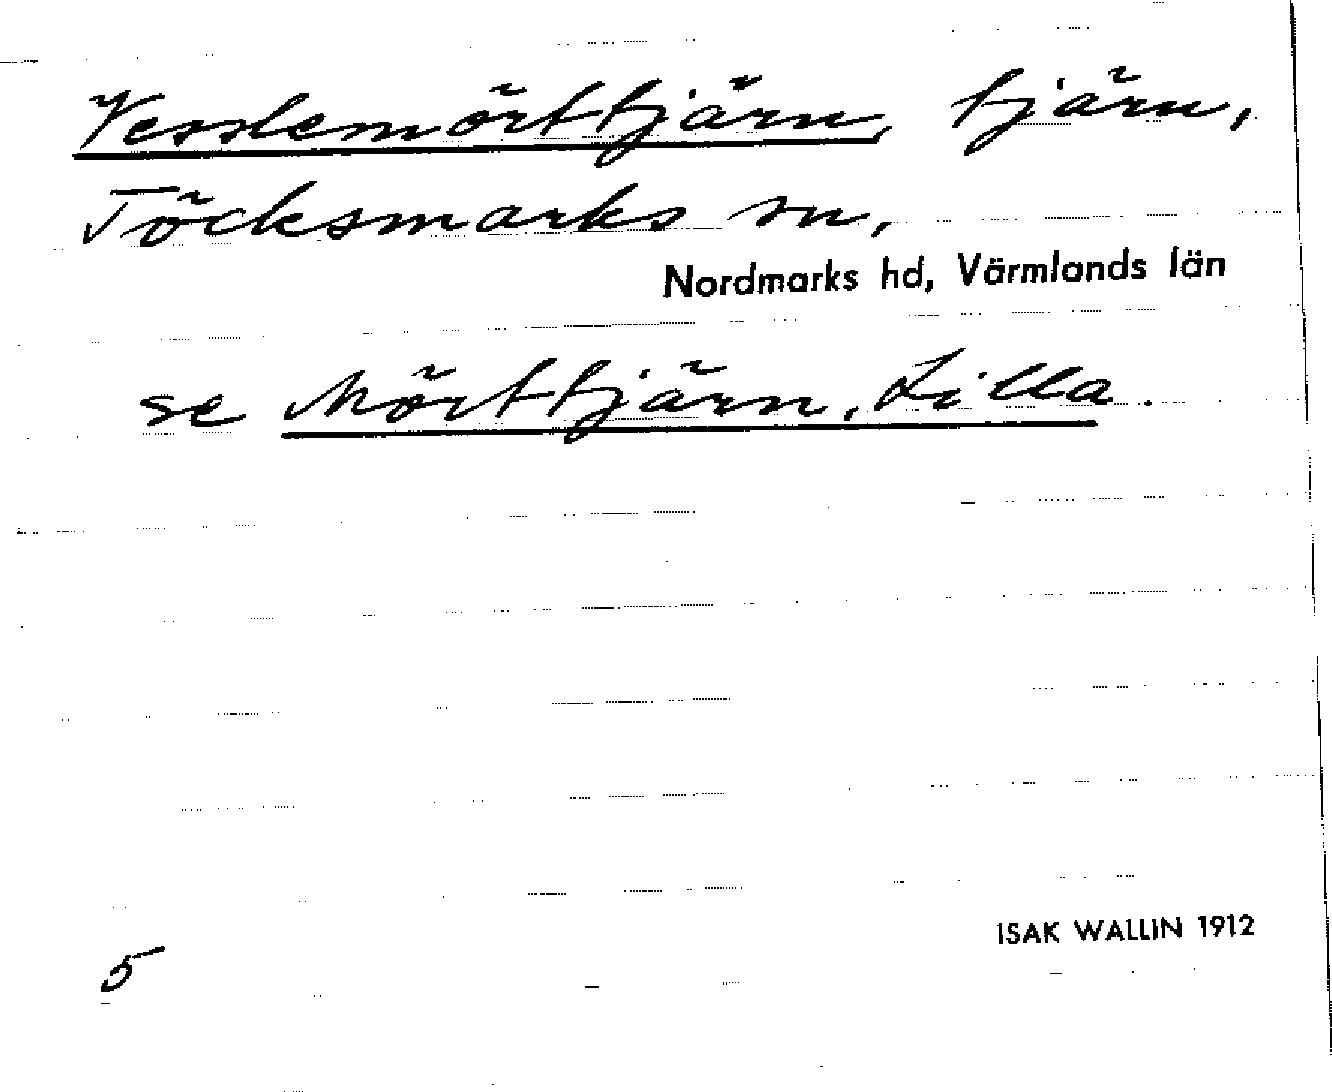 Vesslemörttjärn, tjärn,
Töcksmarks sn,
Nordmarks hd, Värmlands län
se Mörttjärn, Lilla.
ISAK WALLIN 1912
5